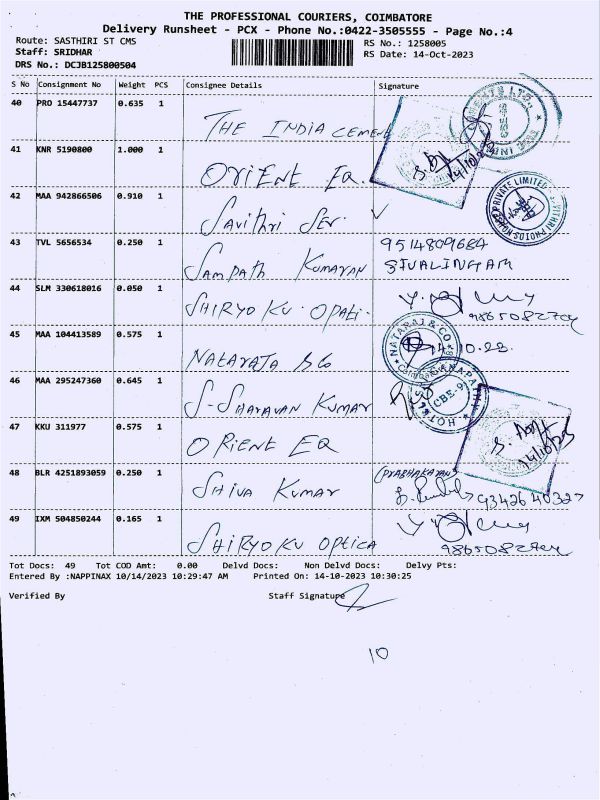 THE PROFESSIONAL COURIERS, COIMBATORE
Delivery Runsheet - PCX - Phone No.:0422-3505555 - Page No.:4
Route: SASTHIRI ST CMS
RS No.: 1258005
Staff: SRIDHAR
RS Date: 14-Oct-2023
DRS No.: DCJB125800504
S No Consignment No Weight PCS Consignee Details Signature
40 PRO 15447737 0.635 1 THE INDIA CEMENT
41 KNR 5190800 1.000 1 ORIENT EQ. 14/10/23
42 MAA 942866506 0.910 1 Savithri Ser. PRIVATE LIMITED
43 TVL 5656534 0.250 1 Sampath Kumaran 9514809684 SIVALINGAM
44 SLM 330618016 0.050 1 SHIRYO KU. OPALI. 9865082704
45 MAA 104413589 0.575 1 NATARAJA & Co NATARAJ & CO 14.10.23.
46 MAA 295247360 0.645 1 S-Sharavan Kumar GANAPATHY HOTEL CBE-9
47 KKU 311977 0.575 1 ORIENT EQ 14/10/23
48 BLR 4251893059 0.250 1 SHIVA KUMAR (PRABHAKARAN) 9342640327
49 IXM 504850244 0.165 1 SHIRYO KU OPTICA 9865082704
Tot Docs: 49 Tot COD Amt: 0.00 Delvd Docs: Non Delvd Docs: Delvy Pts:
Entered By :NAPPINAX 10/14/2023 10:29:47 AM Printed On: 14-10-2023 10:30:25
Verified By Staff Signature
10